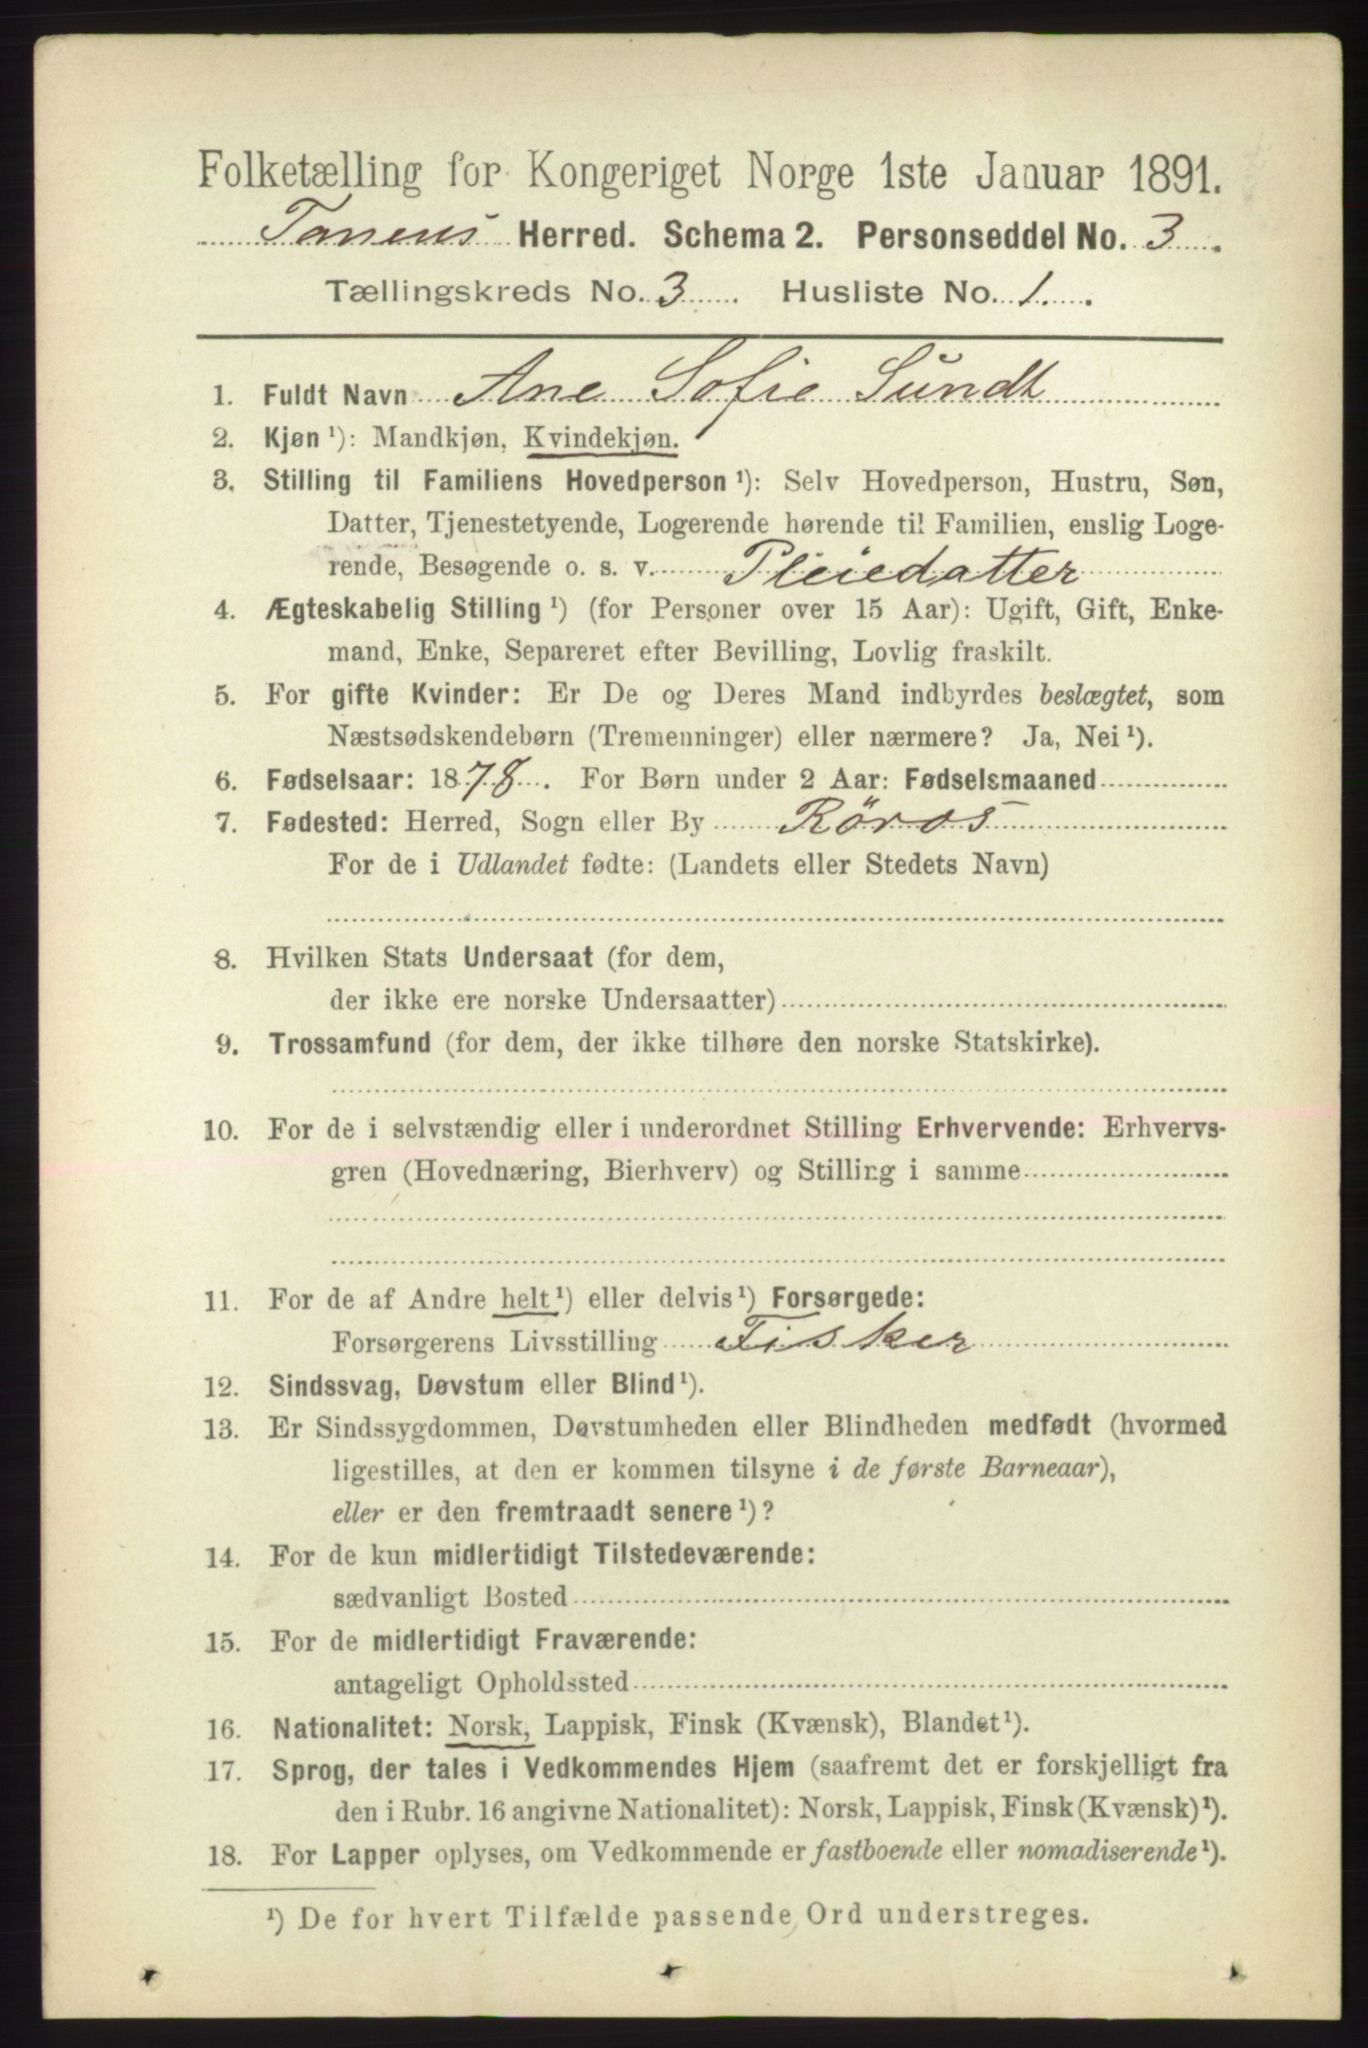 Folketælling for Kongeriget Norge 1ste Januar 1891.
Tanens Herred. Schema 2. Personseddel No. 3.
Tællingskreds No. 3 Husliste No. 1.
1. Fuldt Navn Ane Sofie Sundt
2. Kjøn¹): Mandkjøn, Kvindekjøn.
3. Stilling til Familiens Hovedperson¹): Selv Hovedperson, Hustru, Søn,
Datter, Tjenestetyende, Logerende hørende til Familien, enslig Loge-
rende, Besøgende o. s. v. Pleiedatter
4. Ægteskabelig Stilling¹) (for Personer over 15 Aar): Ugift, Gift, Enke-
mand, Enke, Separeret efter Bevilling, Lovlig fraskilt.
5. For gifte Kvinder: Er De og Deres Mand indbyrdes beslægtet, som
Næstsødskendebørn (Tremenninger) eller nærmere? Ja, Nei¹).
6. Fødselsaar: 1878. For Børn under 2 Aar: Fødselsmaaned
7. Fødested: Herred, Sogn eller By Röros
For de i Udlandet fødte: (Landets eller Stedets Navn)
8. Hvilken Stats Undersaat (for dem,
der ikke ere norske Undersaatter)
9. Trossamfund (for dem, der ikke tilhøre den norske Statskirke).
10. For de i selvstændig eller i underordnet Stilling Erhvervende: Erhvervs-
gren (Hovednæring, Bierhverv) og Stilling i samme
11. For de af Andre helt¹) eller delvis¹) Forsørgede:
Forsørgerens Livsstilling Fisker
12. Sindssvag, Døvstum eller Blind¹).
13. Er Sindssygdommen, Døvstumheden eller Blindheden medfødt (hvormed
ligestilles, at den er kommen tilsyne i de første Barneaar),
eller er den fremtraadt senere¹)?
14. For de kun midlertidigt Tilstedeværende:
sædvanligt Bosted
15. For de midlertidigt Fraværende:
antageligt Opholdssted
16. Nationalitet: Norsk, Lappisk, Finsk (Kvænsk), Blandet¹).
17. Sprog, der tales i Vedkommendes Hjem (saafremt det er forskjelligt fra
den i Rubr. 16 angivne Nationalitet): Norsk, Lappisk, Finsk (Kvænsk)¹).
18. For Lapper oplyses, om Vedkommende er fastboende eller nomadiserende¹).
¹) De for hvert Tilfælde passende Ord understreges.